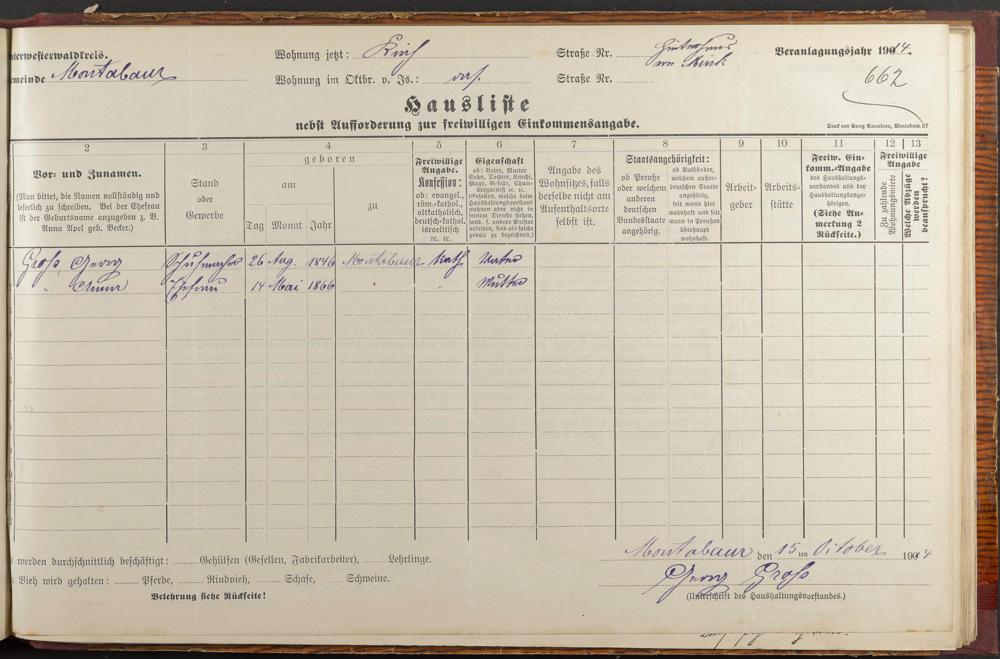 nterwesterwaldkreis.
Wohnung jetzt:
Straße Nr.
Veranlagungsjahr 1904.
emeinde Montabaur
Wohnung im Oktbr. v. Js.:
Straße Nr.
662
Hausliste
nebst Aufforderung zur freiwilligen Einkommensangabe.
Druck von Georg Sauerborn, Montabaur. 07
2 3 4 5 6 7 8 9 10 11 12 13
Vor- und Zunamen.
(Man bittet, die Namen vollständig und
leserlich zu schreiben. Bei der Ehefrau
ist der Geburtsname anzugeben z. B.
Anna Apel geb. Becker.)
Stand
oder
Gewerbe
geboren
am
Tag Monat Jahr
zu
Freiwillige
Angabe.
Konfession:
ob: evangel.,
röm.-kathol.,
altkatholisch,
deutsch-kathol.,
israelitisch
ec. ec.
Eigenschaft
ob: Vater, Mutter
Sohn, Tochter, Knecht,
Magd, Geselle, Cham-
bregarnist ec. ec.
Angabe des
Wohnsitzes, falls
derselbe nicht am
Aufenthaltsorte
selbst ist.
Staatsangehörigkeit:
ob Preuße
oder welchem
anderen
deutschen
Bundesstaate
angehörig.
ob Ausländer,
welchem außer-
deutschen Staate
angehörig,
seit wann hier
wohnhaft und seit
wann in Preußen
überhaupt
wohnhaft.
Arbeit-
geber
Arbeits-
stätte
Freiw. Ein-
komm.-Angabe
des Haushaltungs-
vorstandes und der
Haushaltungsange-
hörigen.
(Siehe An-
merkung 2
Rückseite.)
Freiwillige
Angabe
Zu zahlende
Wohnungsmiete
Welche Abzüge
werden
beansprucht?
Groß, Georg Schuhmacher 26 Aug. 1846 Montabaur kath. Vater
" Anna Ehefrau 14 Mai 1866 " " Mutter
werden durchschnittlich beschäftigt: Gehülfen (Gesellen, Fabrikarbeiter), Lehrlinge.
Vieh wird gehalten: Pferde, Rindvieh, Schafe, Schweine.
Belehrung siehe Rückseite!
Montabaur den 15 ten October 1904
Georg Groß
(Unterschrift des Haushaltungsvorstandes.)